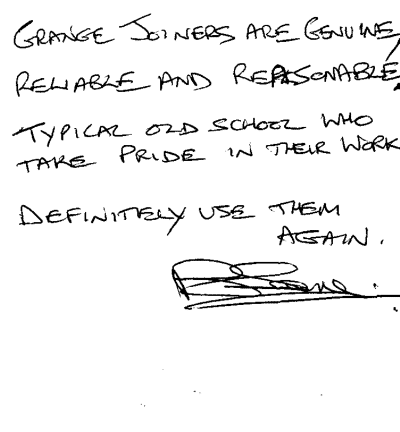 GRANGE JOINERS ARE GENUINE,
RELIABLE AND REASONABLE.
TYPICAL OLD SCHOOL WHO
TAKE PRIDE IN THEIR WORK
DEFINITELY USE THEM
AGAIN.